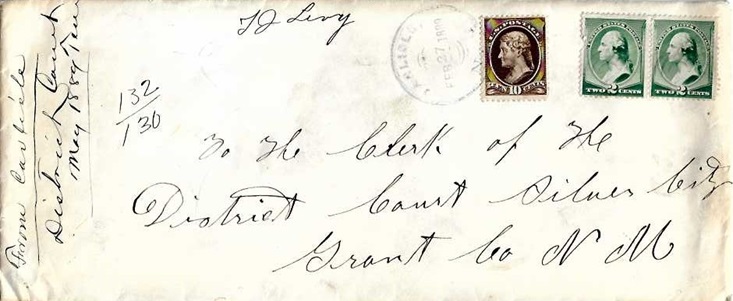 T J Levy
FEB 27 1889
U.S. POSTAGE
TEN 10 CENTS
TWO 2 CENTS
TWO 2 CENTS
132
130
To The Clerk of The
District Court Silver City
Grant Co N M
From Carlisle
District Court
May 1889 Term